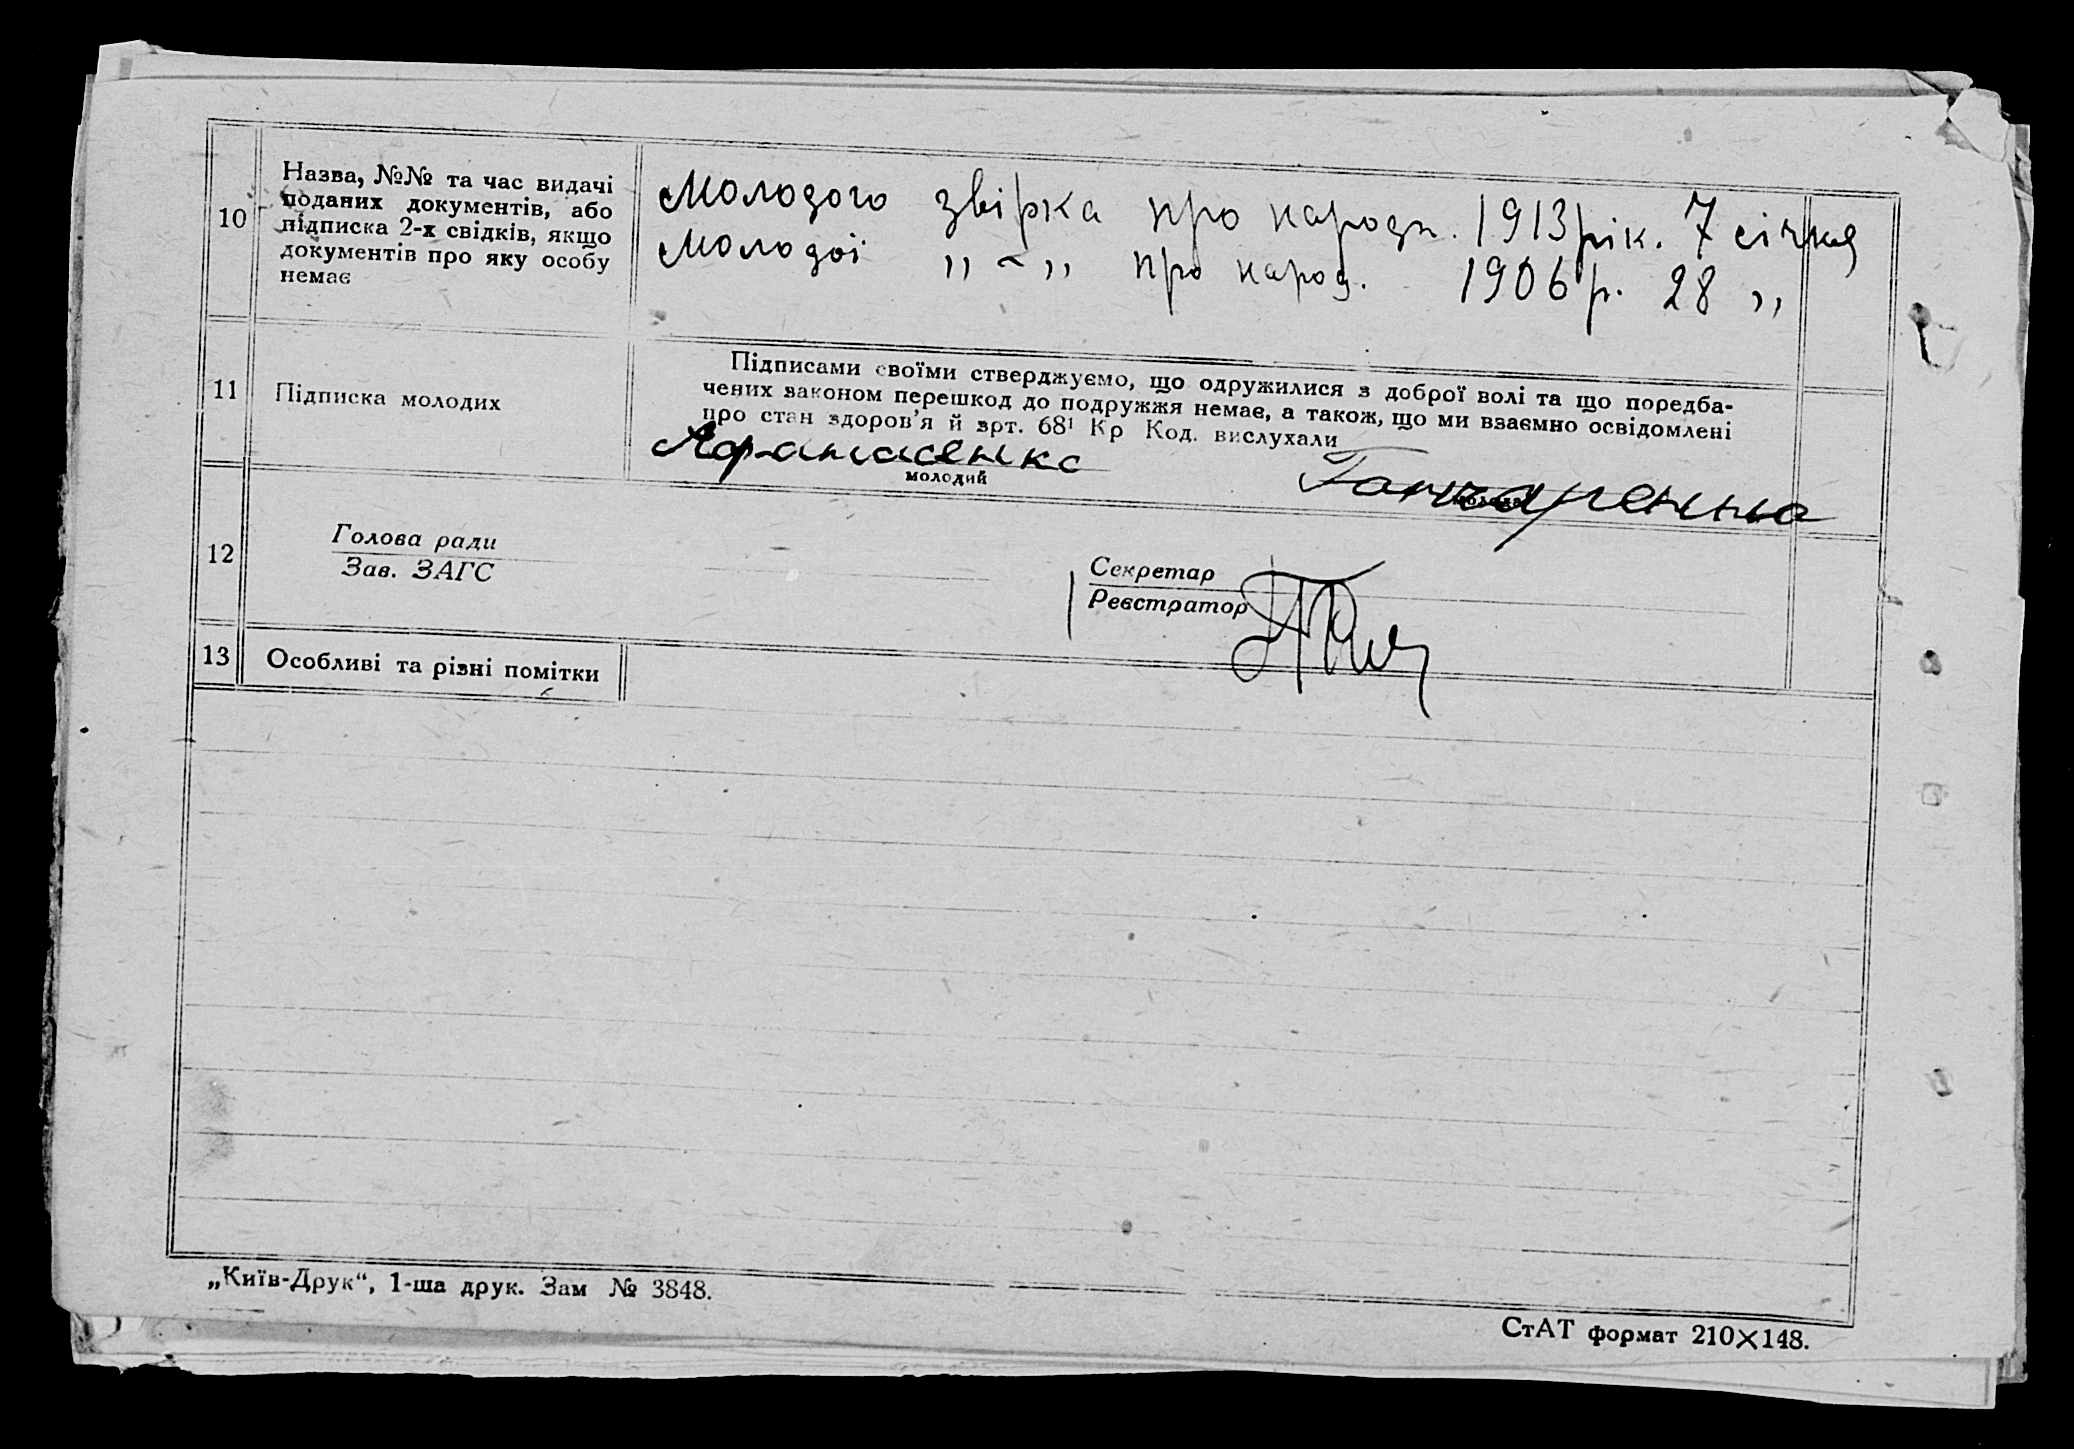 10
Назва, №№ та час видачі
поданих документів, або
підписка 2-х свідків, якщо
документів про яку особу
немає
Молодого звірка про народж. 1913 рік. 7 січня
Молодої „ - „ про народ. 1906 р. 28 „
11
Підписка молодих
Підписами своїми стверджуємо, що одружилися з доброї волі та що поредба-
чених законом перешкод до подружжя немає, а також, що ми взаємно освідомлені
про стан здоров'я й врт. 68¹ Кр Код. вислухали
Афанасенко
Гончаренко
молодий
молода
12
Голова ради
Зав. ЗАГС
Секретар
Реєстратор
13
Особливі та різні помітки
„Київ-Друк“, 1-ша друк. Зам № 3848.
СтАТ формат 210×148.